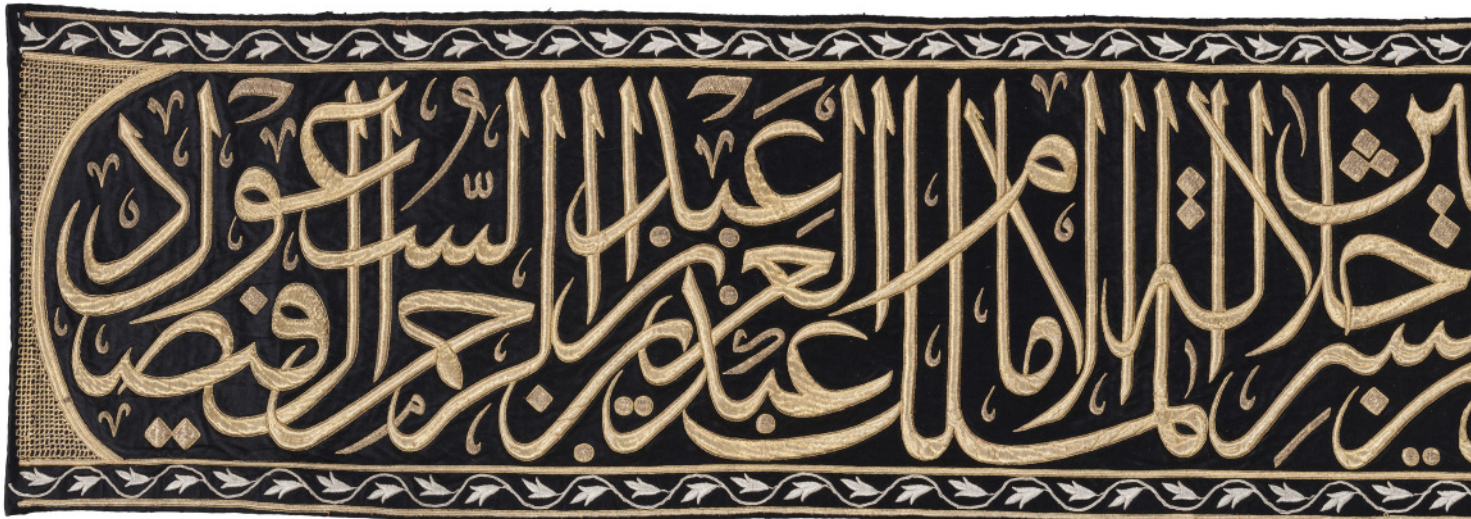 جلالة الملك الامام عبد العزيز بن عبد الرحمن الفيصل السعود